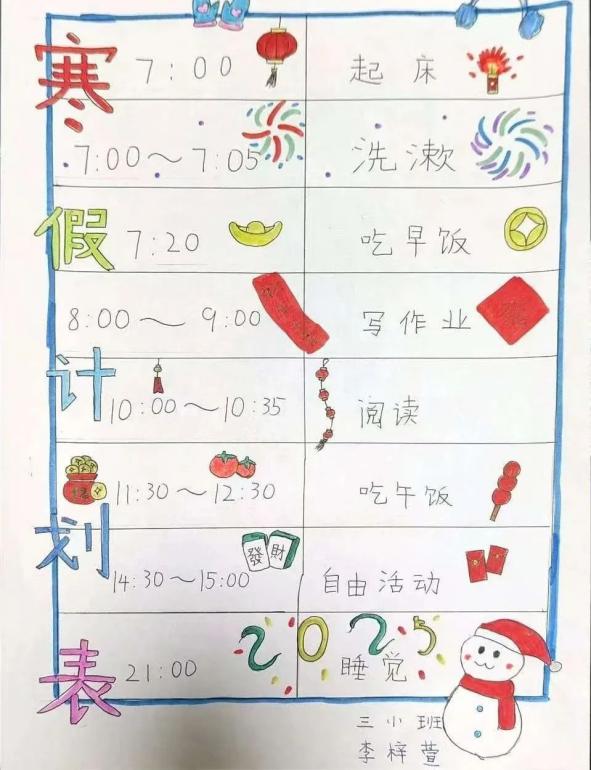 寒假计划表
7:00 起床
7:00～7:05 洗漱
7:20 吃早饭
8:00～9:00 写作业
10:00～10:35 阅读
11:30～12:30 吃午饭
發 財
14:30～15:00 自由活动
2025
21:00 睡觉
三小班
李梓萱